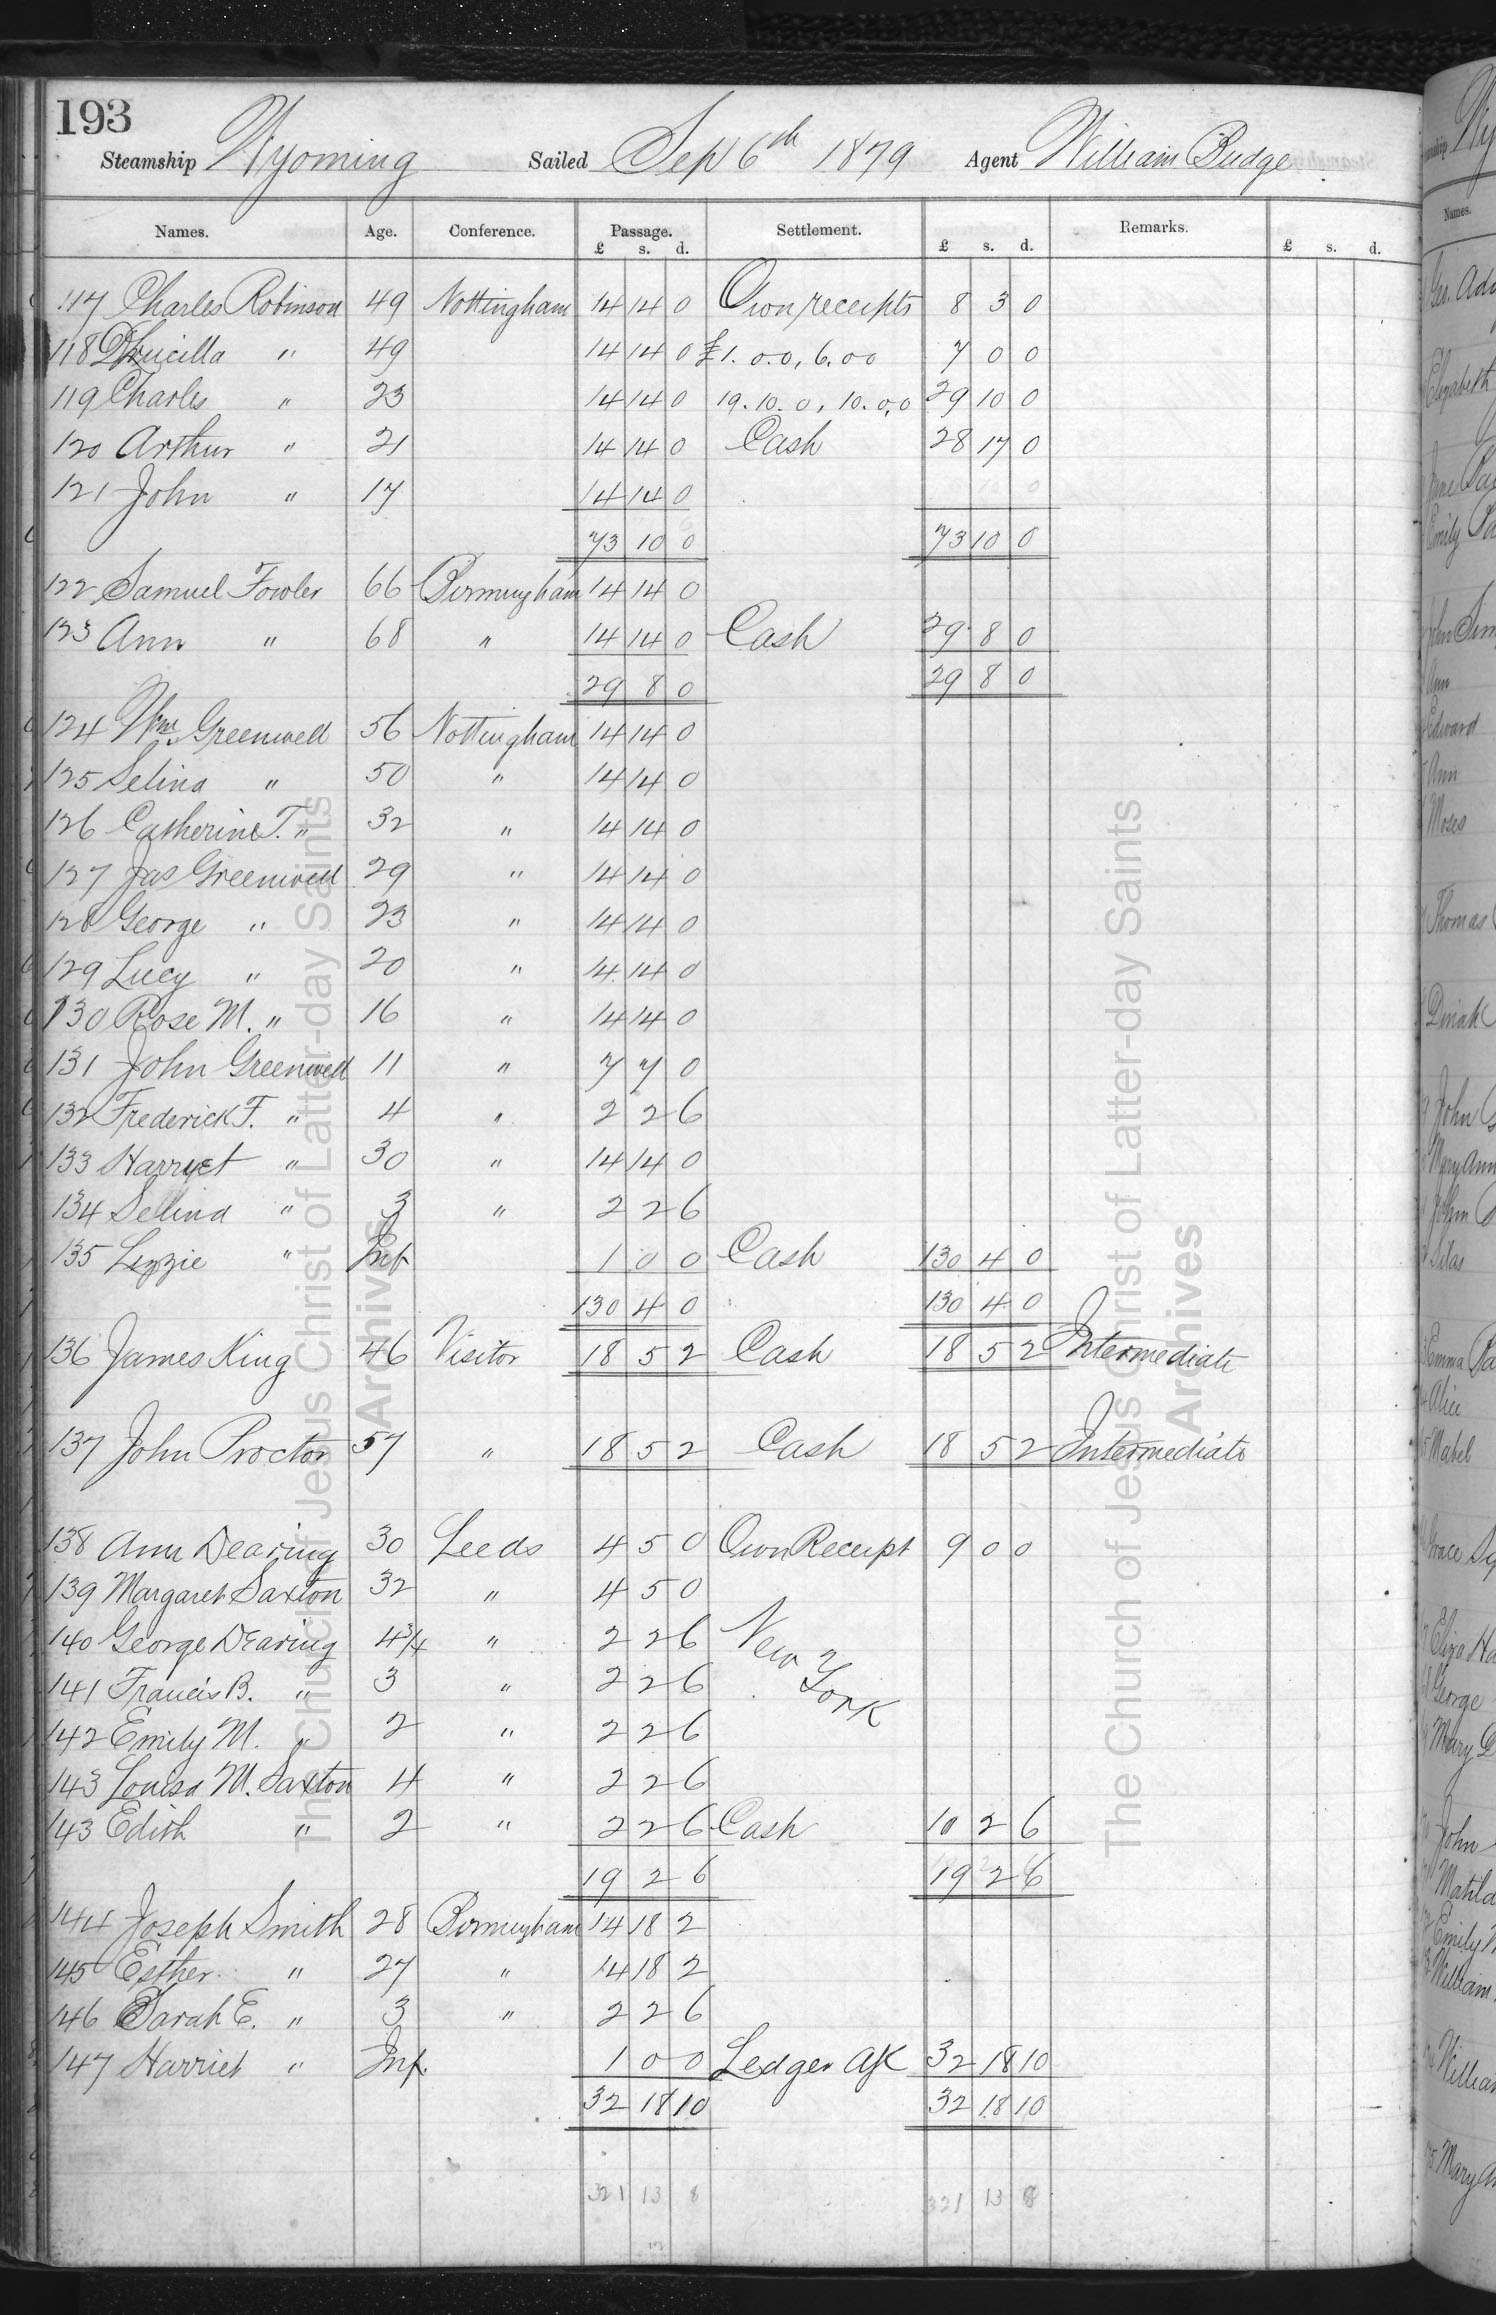 193
Steamship Wyoming Sailed Sep 6th 1879 Agent William Budge
Names. Age. Conference. Passage. Settlement. Remarks.
£ s. d. £ s. d. £ s. d.
117 Charles Robinson 49 Nottingham 14 14 0 Own receipts 8 3 0
118 Drucilla " 49 14 14 0 £1.0.0, 6.00 7 0 0
119 Charles " 23 14 14 0 19.10.0, 10.0,0 29 10 0
120 Arthur " 21 14 14 0 Cash 28 17 0
121 John " 17 14 14 0
73 10 0 73 10 0
122 Samuel Fowler 66 Birmingham 14 14 0
123 Ann " 68 " 14 14 0 Cash 29 8 0
29 8 0 29 8 0
124 Wm. Greenwell 56 Nottingham 14 14 0
125 Selina " 50 " 14 14 0
126 Catherine T. " 32 " 14 14 0
127 Jas Greenwell 29 " 14 14 0
128 George " 23 " 14 14 0
129 Lucy " 20 " 14 14 0
130 Rose M. " 16 " 14 14 0
131 John Greenwell 11 " 7 7 0
132 Frederick T. " 4 " 2 2 6
133 Harryet " 30 " 14 14 0
134 Selina " 3 " 2 2 6
135 Lizzie " Inf 1 0 0 Cash 130 4 0
130 4 0 130 4 0
136 James King 46 Visitor 18 5 2 Cash 18 5 2 Intermediate
137 John Proctor 57 " 18 5 2 Cash 18 5 2 Intermediate
138 Ann Dearing 30 Leeds 4 5 0 Own Receipt 9 0 0
139 Margaret Saxton 32 " 4 5 0
140 George Dearing 4 3/4 " 2 2 6 New
141 Francis B. " 3 " 2 2 6 York
142 Emily M. " 2 " 2 2 6
143 Louisa M. Saxton 4 " 2 2 6
143 Edith " 2 " 2 2 6 Cash 10 2 6
19 2 6 19 2 6
144 Joseph Smith 28 Birmingham 14 18 2
145 Esther " 27 " 14 18 2
146 Sarah E. " 3 " 2 2 6
147 Harriet " Inf. 1 0 0 Ledger A/C 32 18 10
32 18 10 32 18 10
321 13 8 321 13 8
The Church of Jesus Christ of Latter-day Saints
Archives
The Church of Jesus Christ of Latter-day Saints
Archives
Names.
Elizabeth
Ann
Edward
Ann
Moses
Thomas
John
Mary Ann
John
Silas
Emma
Alice
Mabel
Grace
Eliza
George
Mary
John
Matilda
Emily
William
Mary